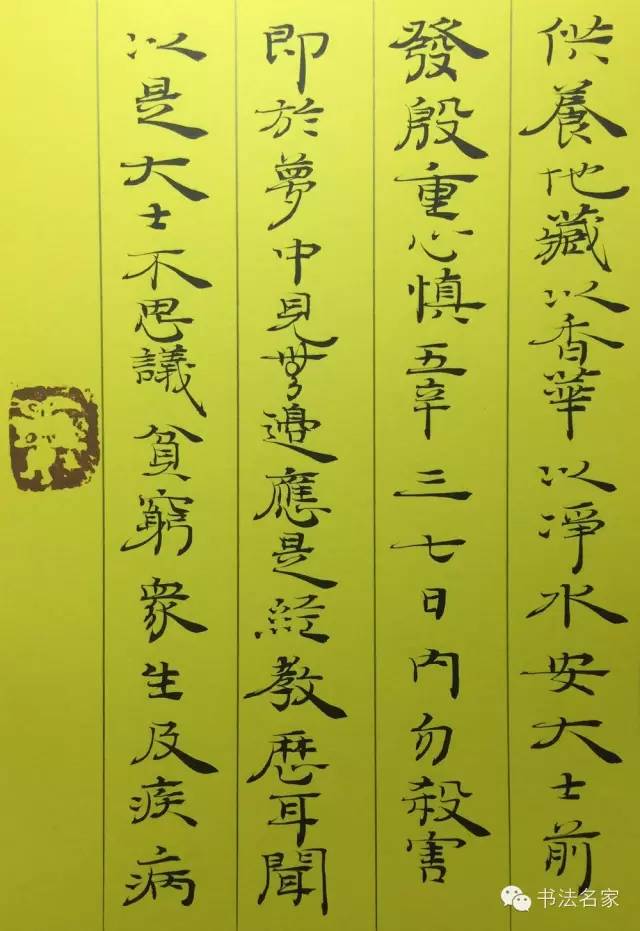 供養地藏以香華以淨水安大士前
發殷重心慎五辛三七日內勿殺害
即於夢中見無邊應是經教歷耳聞
以是大士不思議貧窮衆生及疾病
书法名家